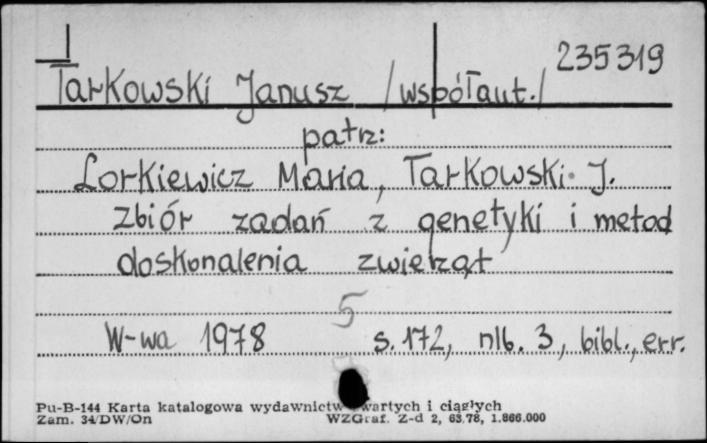 235319
Tarkowski Janusz /współaut./
patrz:
Lorkiewicz Maria, Tarkowski J.
Zbiór zadań z genetyki i metod
doskonalenia zwierząt
5
W-wa 1978 s. 172, nlb. 3, bibl., err.
Pu-B-144 Karta katalogowa wydawnictw zwartych i ciągłych
Zam. 34/DW/On WZGraf. Z-d 2, 63,78, 1.866.000